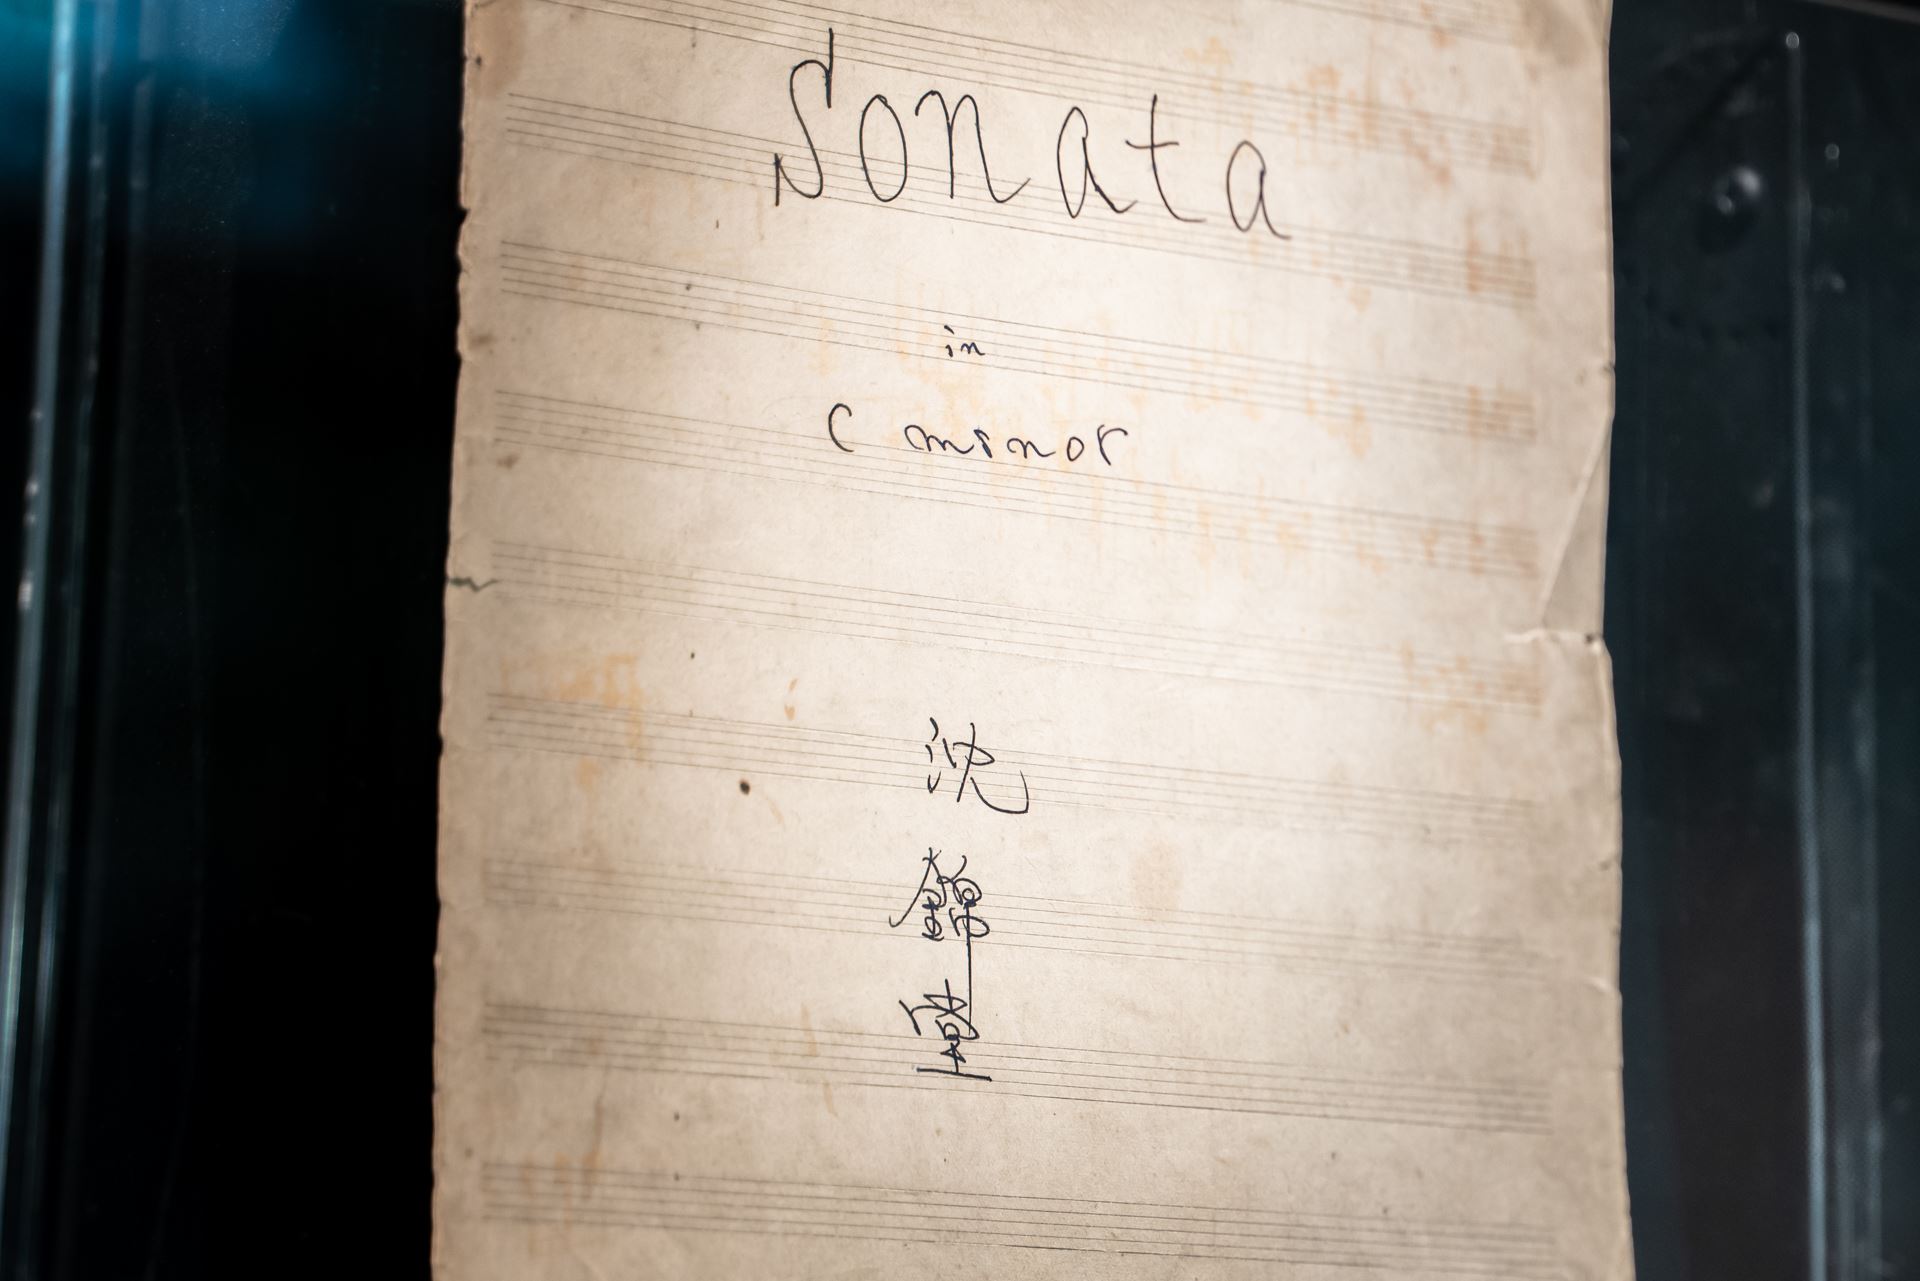 Sonata
in
C minor
沈
錦
堂